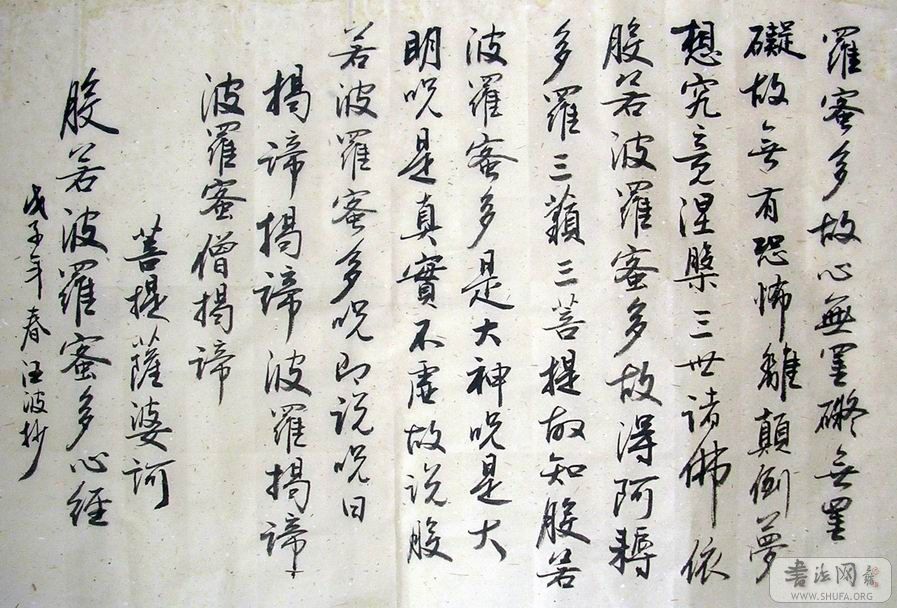 羅蜜多故心無罣礙無罣
礙故無有恐怖離顛倒夢
想究竟涅槃三世諸佛依
般若波羅蜜多故得阿耨
多羅三藐三菩提故知般若
波羅蜜多是大神咒是大
明咒是真實不虛故说般
若波羅蜜多咒即说咒曰
揭諦揭諦波羅揭諦
波羅蜜僧揭諦
菩提薩婆訶
般若波羅蜜多心經
戊子年春汪波抄
书法网
WWW.SHUFA.ORG